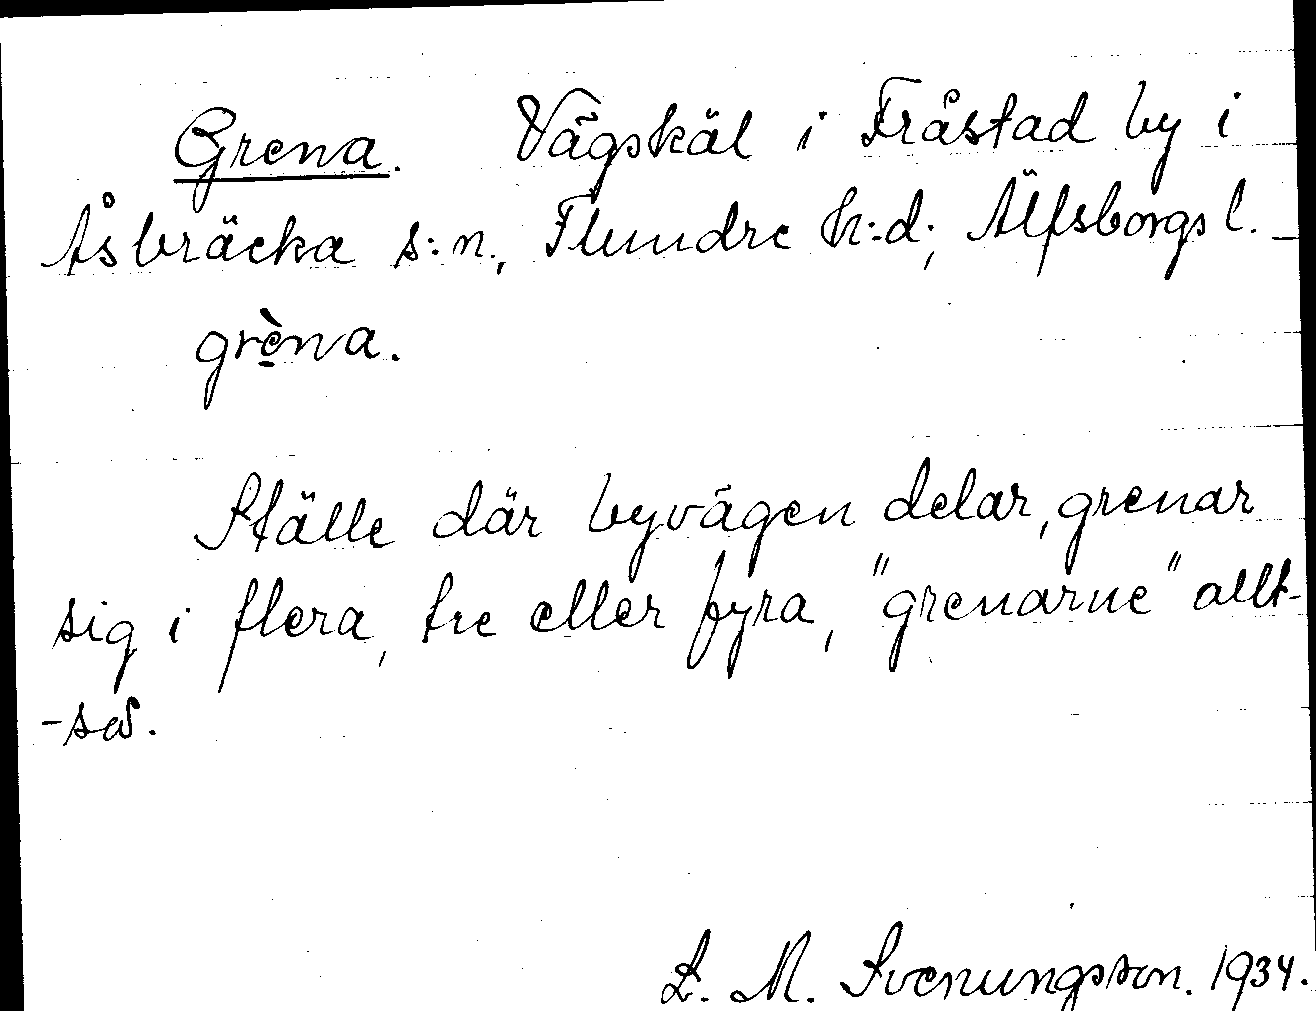 Grena. Vägskäl i Fråstad by i
Åsbräcka s:n., Flundre h:d., Älfsborgs l. -
grèna.
Ställe där byvägen delar, grenar
sig i flera, tre eller fyra, "grenarne" allt-
-så.
L. M. Svenungsson. 1934.